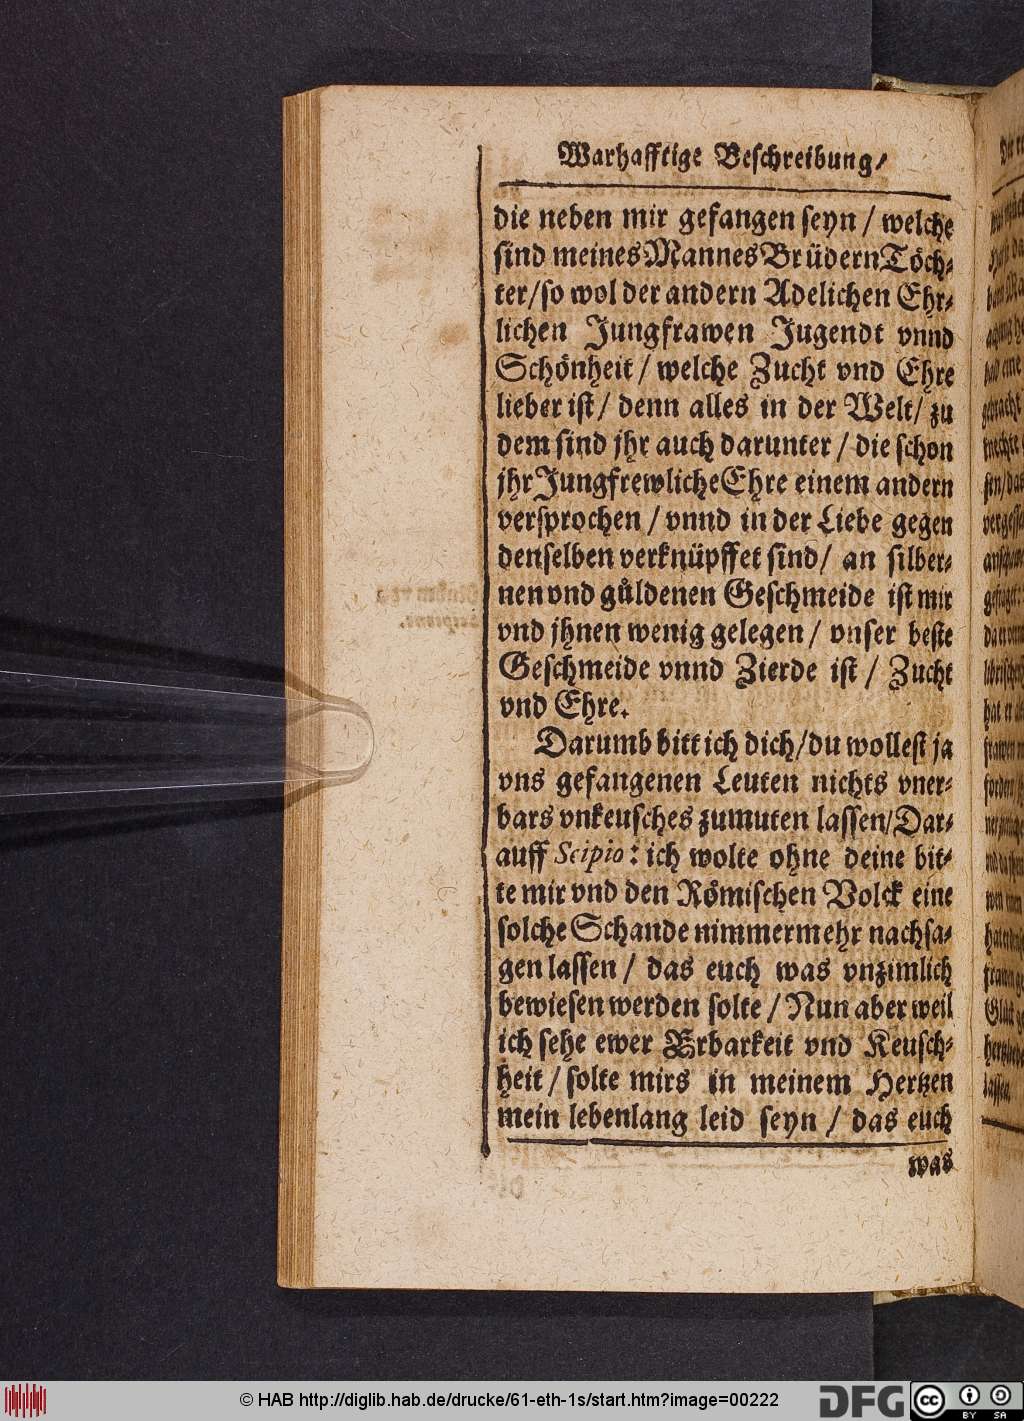 Warhafftige Beschreibung/
die neben mir gefangen seyn / welche
sind meines Mannes Brüdern Töch-
ter/so wol der andern Adelichen Ehr-
lichen Jungfrawen Jugendt vnnd
Schönheit / welche Zucht vnd Ehre
lieber ist / denn alles in der Welt/ zu
dem sind jhr auch darunter / die schon
jhr Jungfrewliche Ehre einem andern
versprochen / vnnd in der Liebe gegen
denselben verknüpffet sind/ an silber-
nen vnd gůldenen Geschmeide ist mir
vnd jhnen wenig gelegen / vnser beste
Geschmeide vnnd Zierde ist / Zucht
vnd Ehre.
Darumb bitt ich dich/du wollest ja
vns gefangenen Leuten nichts vner-
bars vnkeusches zumuten lassen/Dar-
auff Scipio: ich wolte ohne deine bit-
te mir vnd den Römischen Volck eine
solche Schande nimmermehr nachsa-
gen lassen / das euch was vnzimlich
bewiesen werden solte / Nun aber weil
ich sehe ewer Erbarkeit vnd Keusch-
heit / solte mirs in meinem Hertzen
mein lebenlang leid seyn / das euch
was
© HAB http://diglib.hab.de/drucke/61-eth-1s/start.htm?image=00222
DFG
cc
BY SA